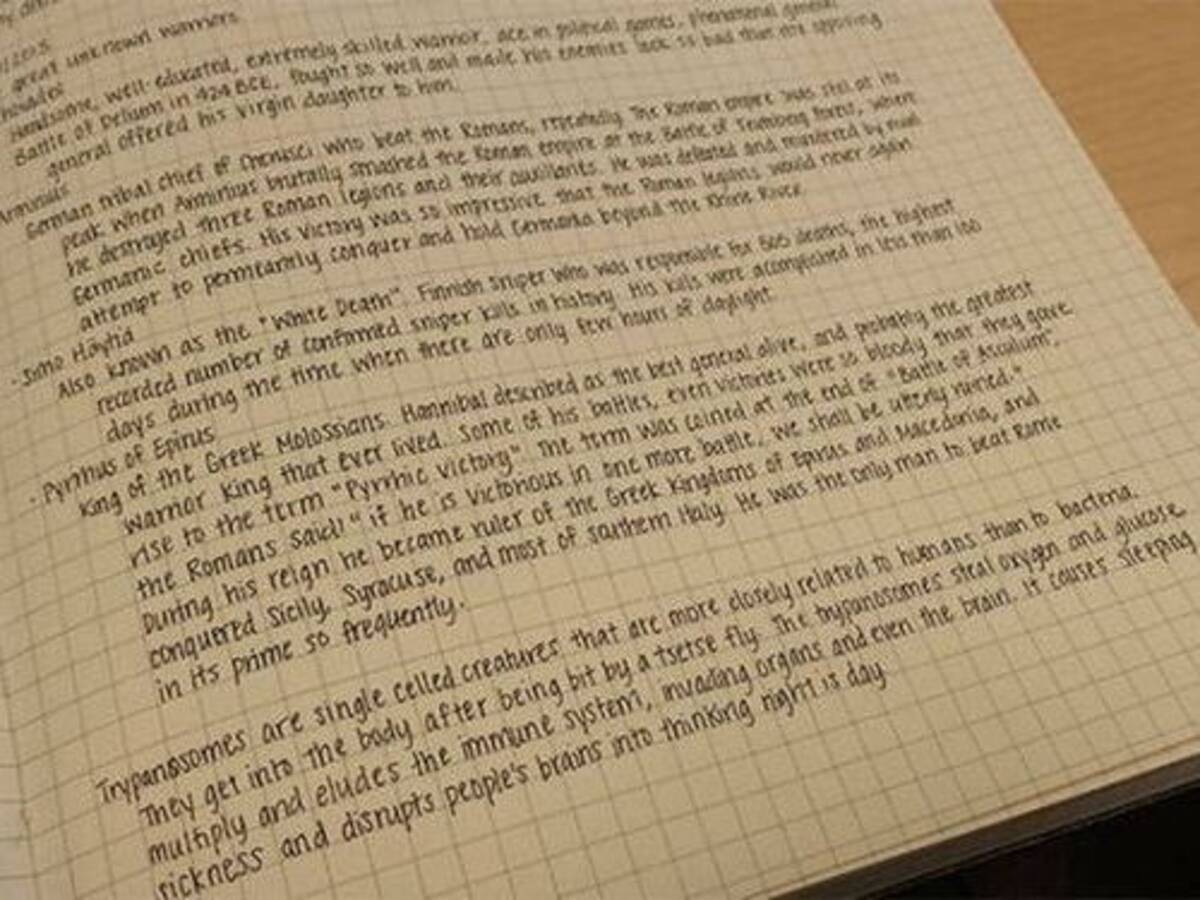 great unknown warriors
handsome, well-educated, extremely skilled warrior, ace in political games, phenomenal general
Battle of Delium in 424 BCE, fought so well and made his enemies look so bad that the opposing
general offered his virgin daughter to him.
Arminius
German tribal chief of Cherusci who beat the Romans, repeatedly. The Roman empire was still at its
peak when Arminius brutally smashed the Roman empire at the Battle of Teutoburg Forest, where
he destroyed three Roman legions and their auxiliaries. He was defeated and murdered by rival
Germanic chiefs. His victory was so impressive that the Roman legions would never again
attempt to permeantly conquer and hold Germania beyond the Rhine River.
- Simo Häyhä
Also known as the "White Death". Finnish sniper who was responsible for 505 deaths, the highest
recorded number of confirmed sniper kills in history. His kills were acomplished in less than 100
days during the time when there are only few hours of daylight.
- Pyrrhus of Epirus
King of the Greek Molossians. Hannibal described as the best general alive, and probably the greatest
warrior king that ever lived. Some of his battles, even victories were so bloody that they gave
rise to the term "Pyrrhic victory". The term was coined at the end of "Battle of Asculum",
the Romans said! "if he is victorious in one more battle, we shall be utterly ruined."
During his reign he became ruler of the Greek Kingdoms of Epirus and Macedonia, and
conquered Sicily, Syracuse, and most of southern Italy. He was the only man to beat Rome
in its prime so frequently.
Trypanosomes are single celled creatures that are more closely related to humans than to bacteria.
They get into the body after being bit by a tsetse fly. The trypanosomes steal oxygen and glucose
multiply and eludes the immune system, invading organs and even the brain. It causes sleeping
sickness and disrupts people's brains into thinking night is day